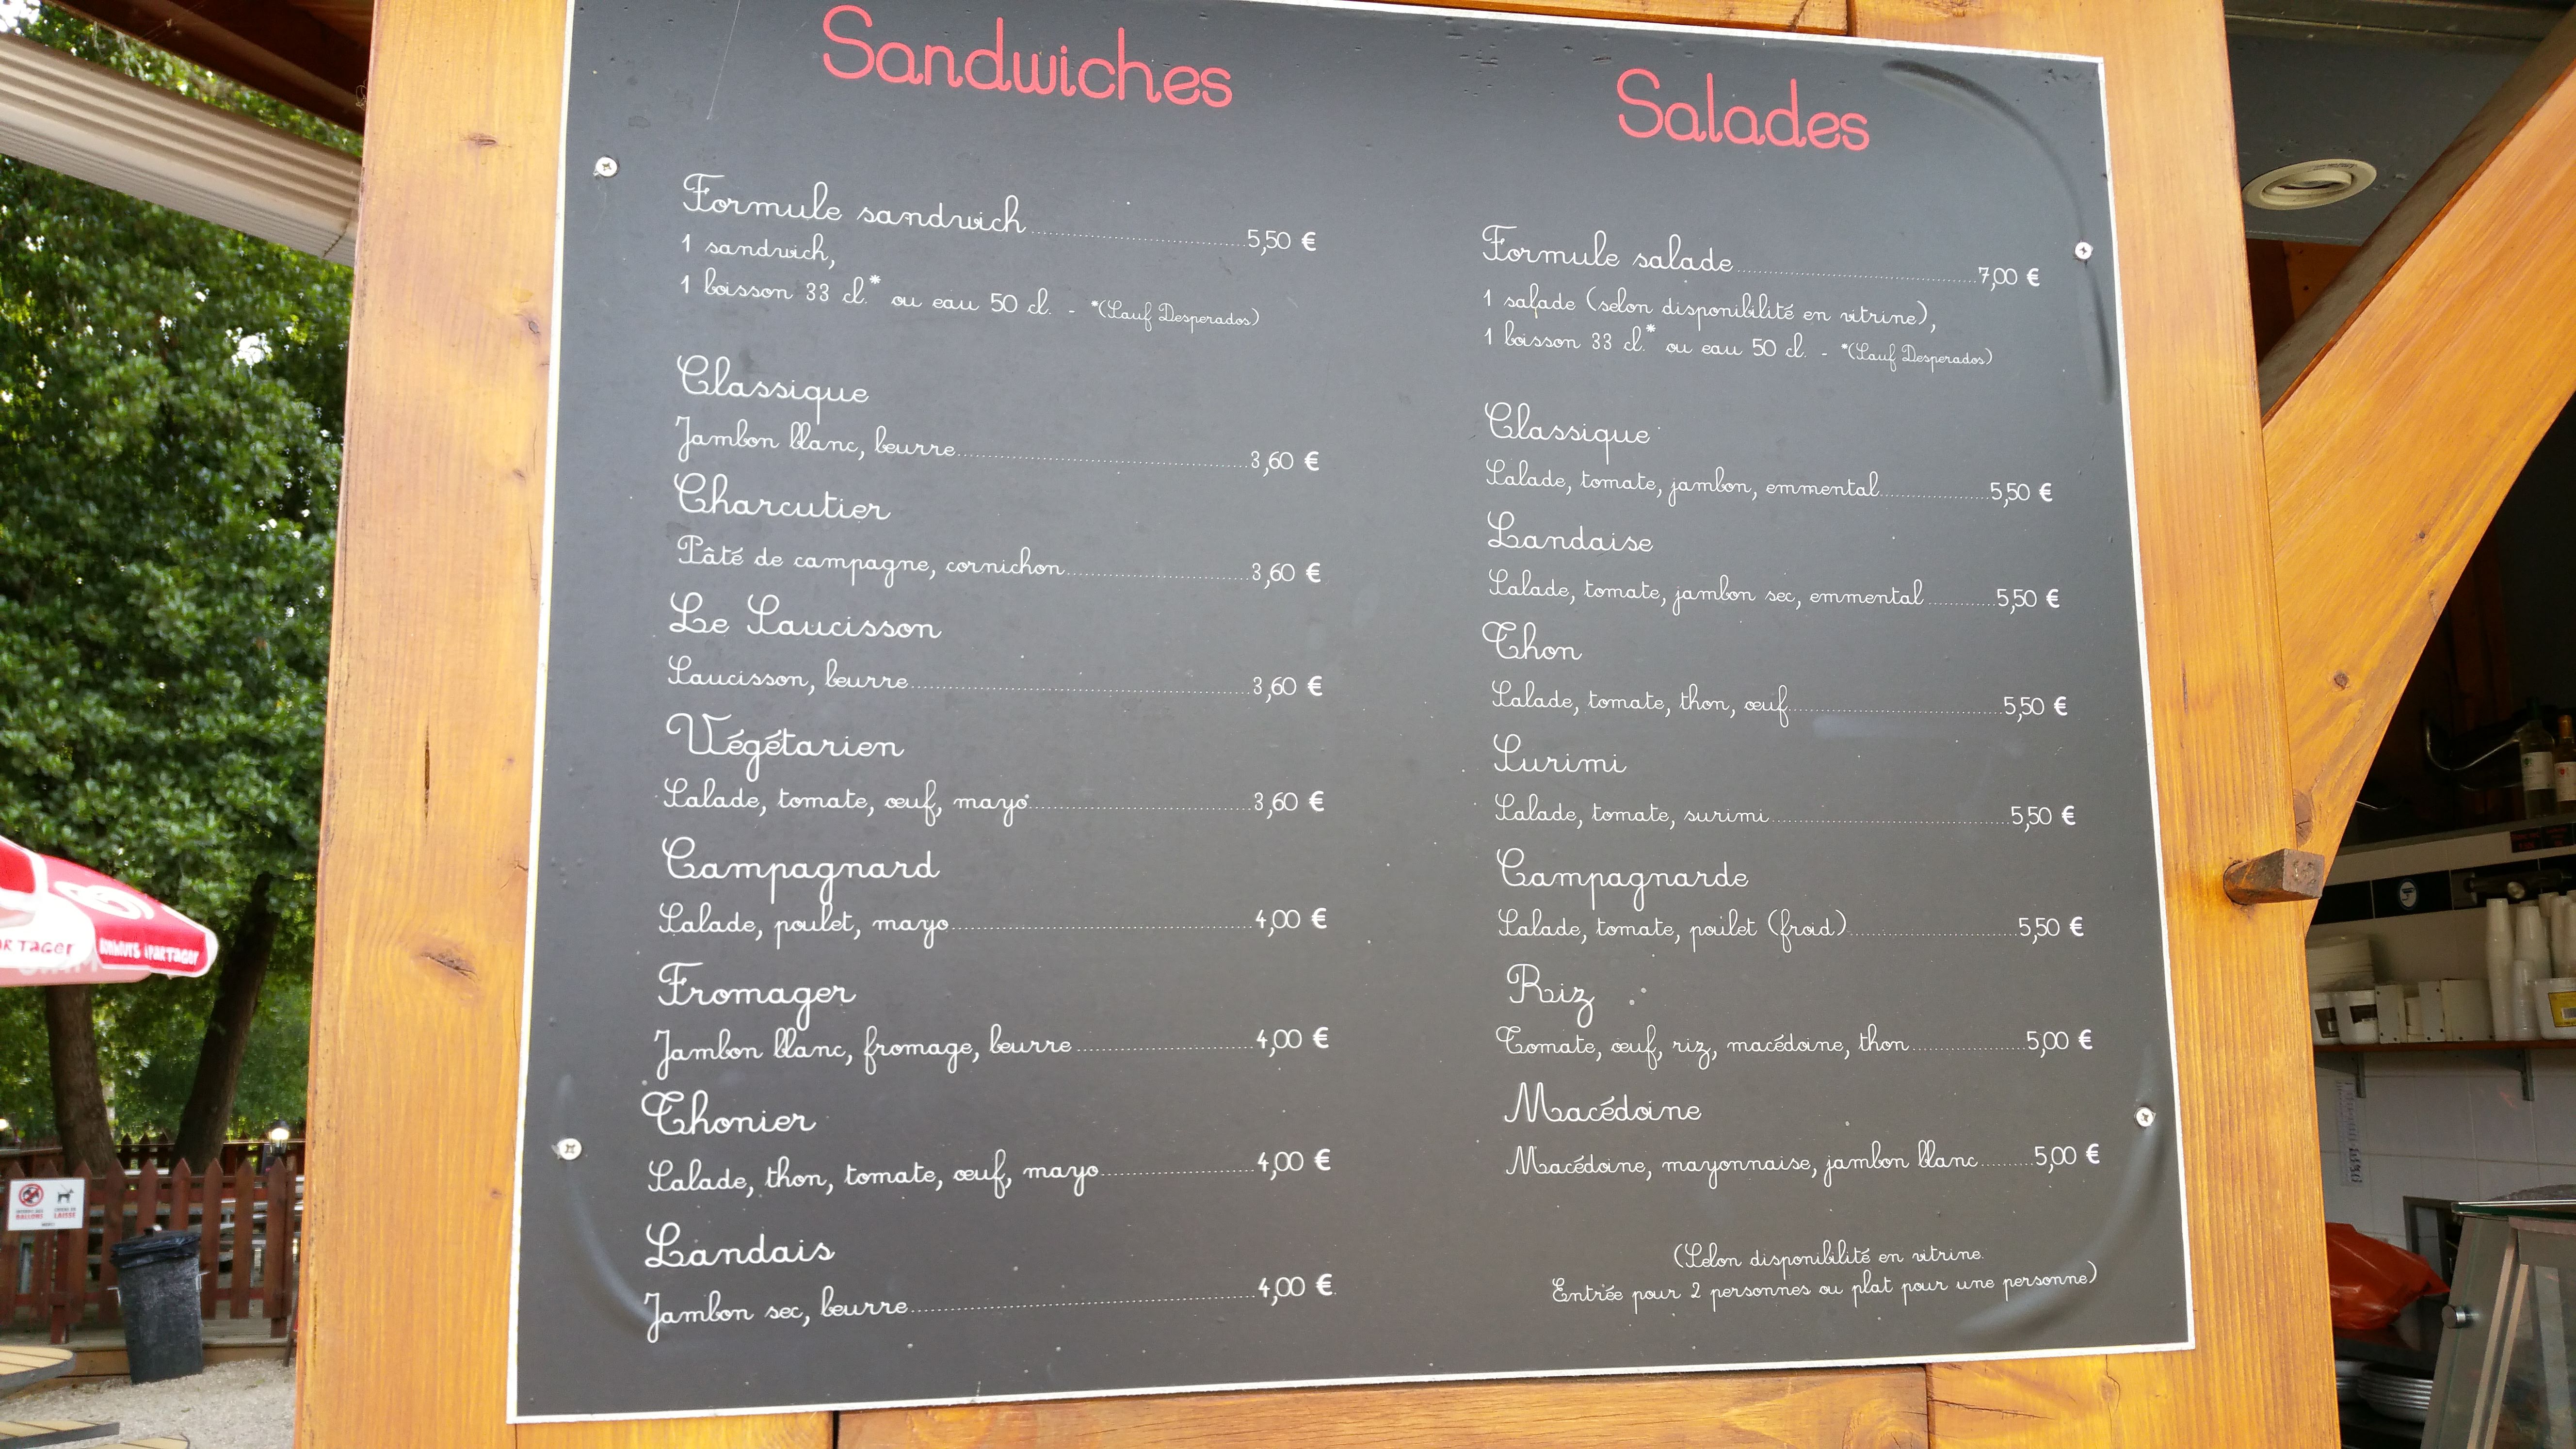 Sandwiches
Formule sandwich 5,50 €
1 sandwich,
1 boisson 33 cl.* ou eau 50 cl. - *(Sauf Desperados)
Classique
Jambon blanc, beurre 3,60 €
Charcutier
Pâté de campagne, cornichon 3,60 €
Le Saucisson
Saucisson, beurre 3,60 €
Végétarien
Salade, tomate, œuf, mayo 3,60 €
Campagnard
Salade, poulet, mayo 4,00 €
Fromager
Jambon blanc, fromage, beurre 4,00 €
Thonier
Salade, thon, tomate, œuf, mayo 4,00 €
Landais
Jambon sec, beurre 4,00 €
Salades
Formule salade 7,00 €
1 salade (selon disponibilité en vitrine),
1 boisson 33 cl.* ou eau 50 cl. - *(Sauf Desperados)
Classique
Salade, tomate, jambon, emmental 5,50 €
Landaise
Salade, tomate, jambon sec, emmental 5,50 €
Thon
Salade, tomate, thon, œuf 5,50 €
Surimi
Salade, tomate, surimi 5,50 €
Campagnarde
Salade, tomate, poulet (froid) 5,50 €
Riz
Tomate, œuf, riz, macédoine, thon 5,00 €
Macédoine
Macédoine, mayonnaise, jambon blanc 5,00 €
(Selon disponibilité en vitrine.
Entrée pour 2 personnes ou plat pour une personne)
BALLONS
LAISSE